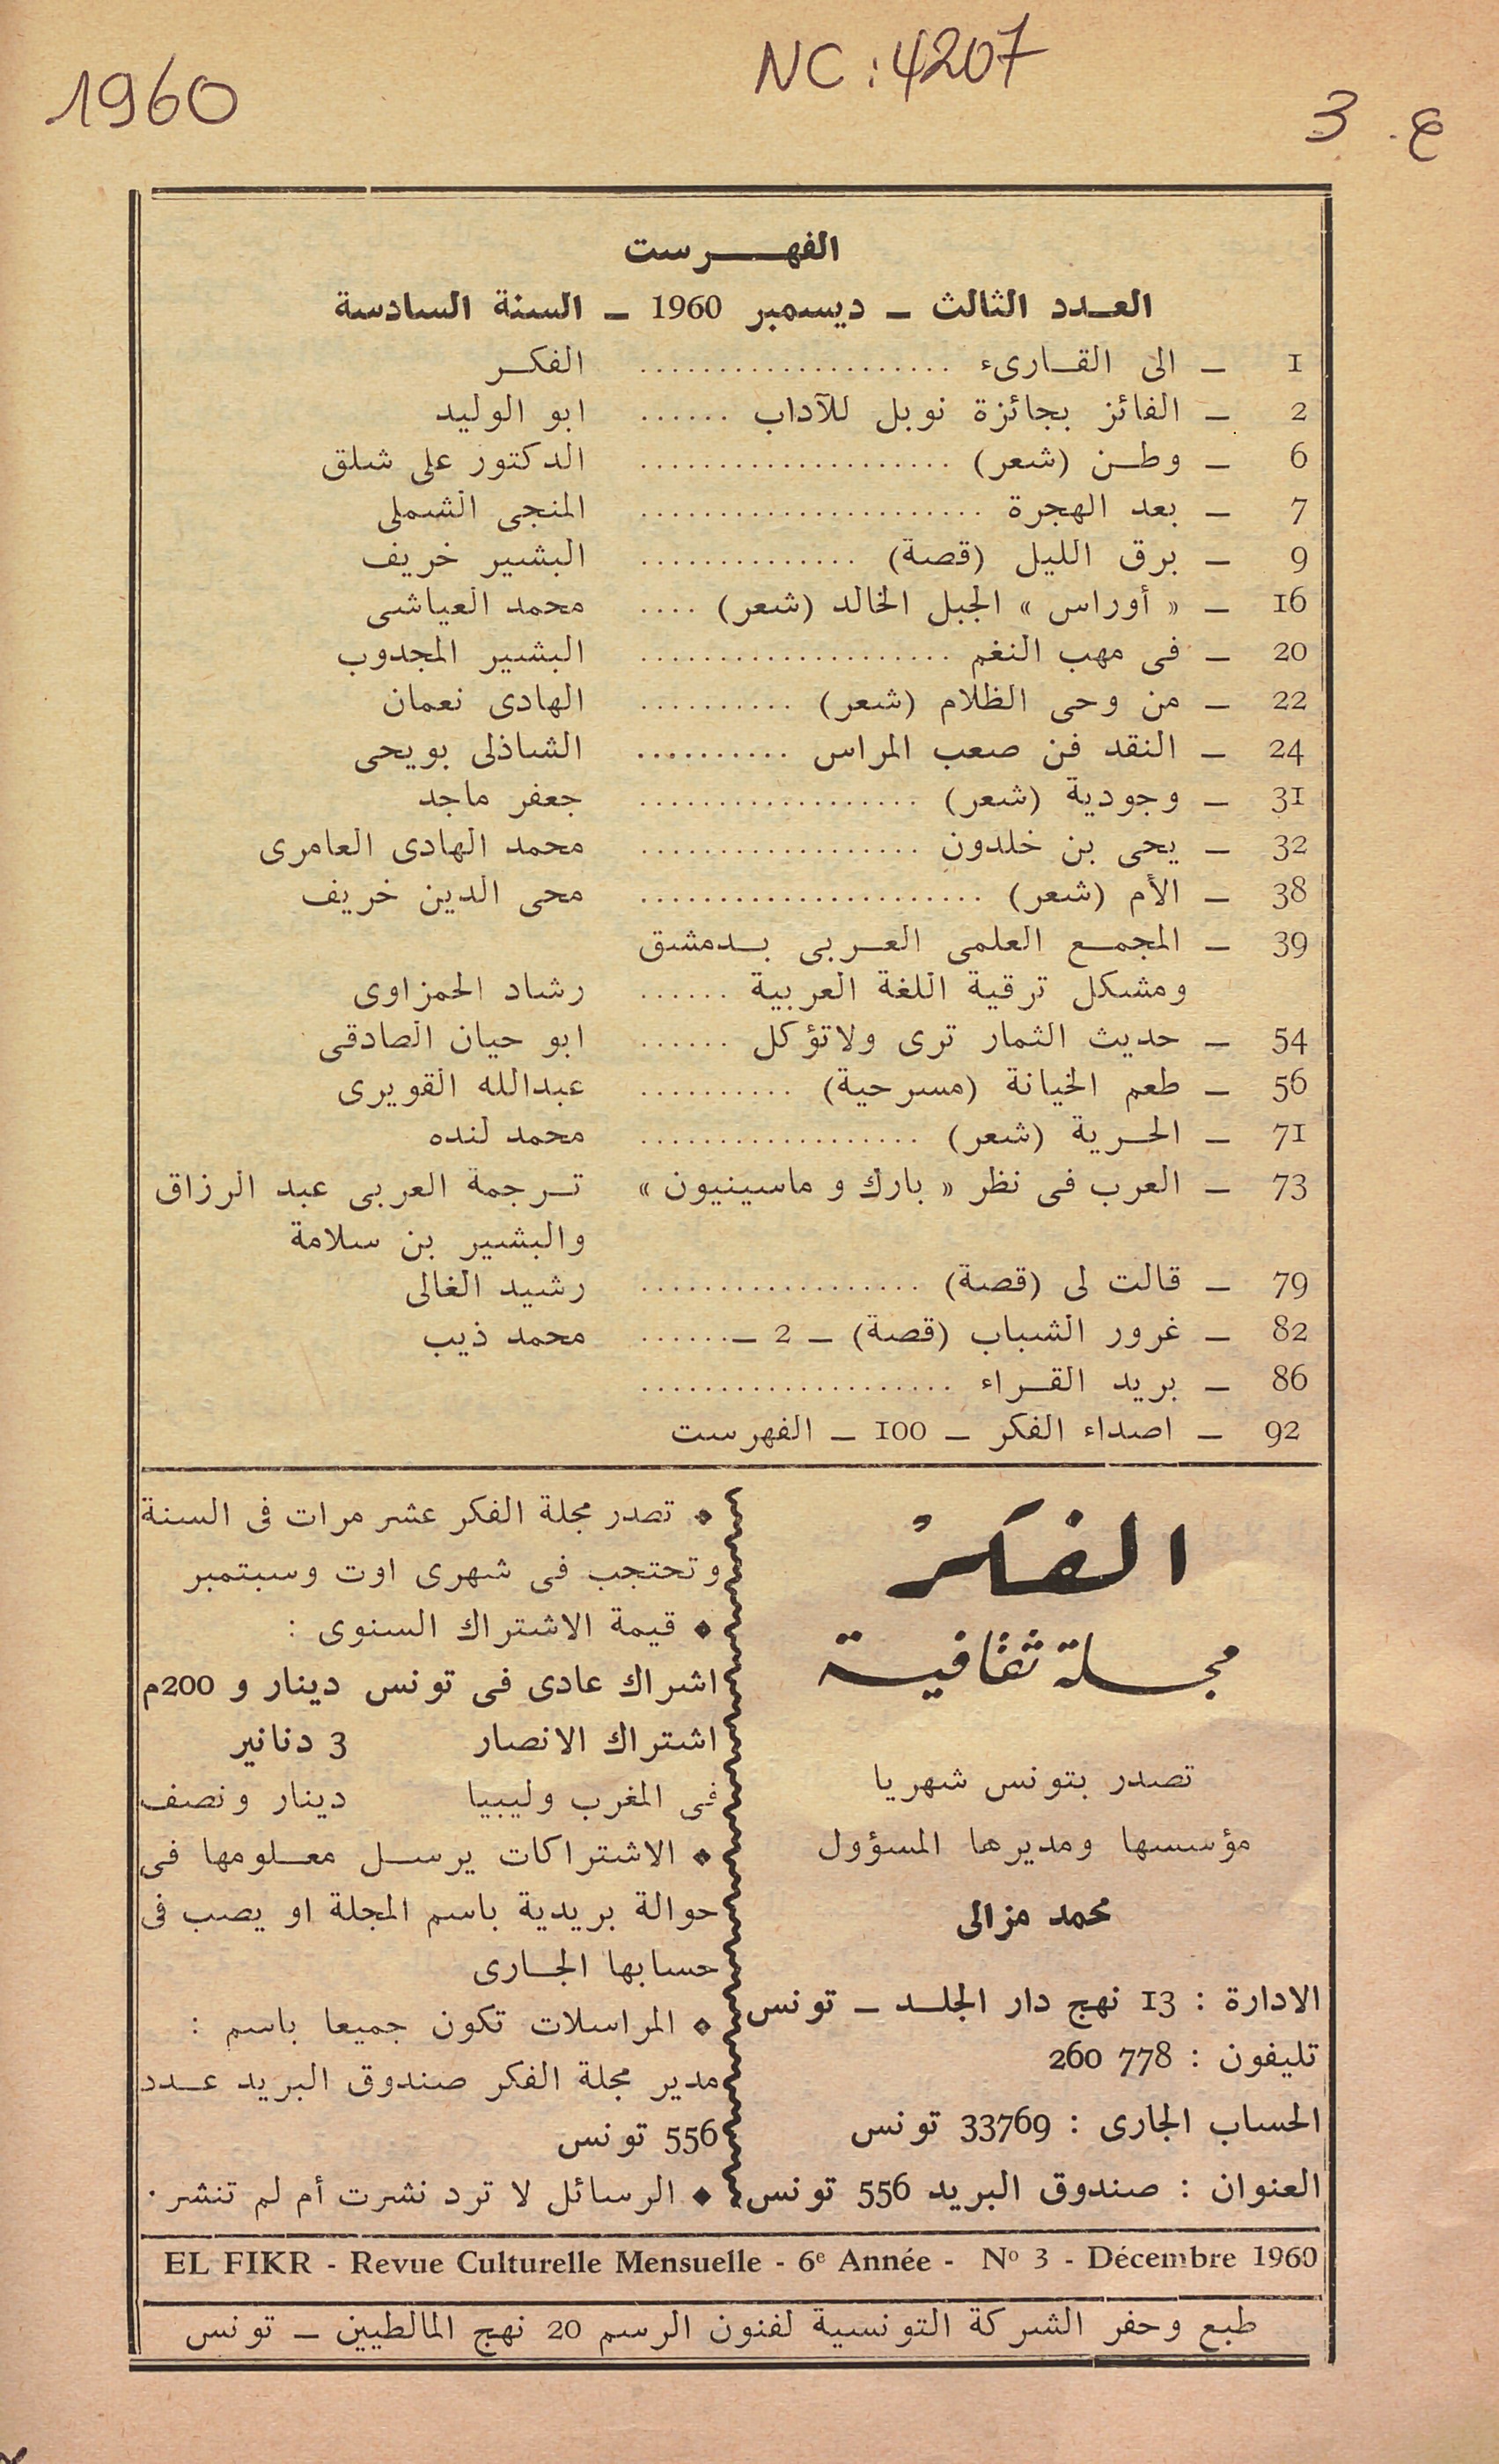 1960
NC : 4207
ع. 3
الفهـــرست
العـدد الثالث ــ ديسمبر 1960 ــ السنة السادسة
1 ــ الى القـارىء .................... الفكـر
2 ــ الفائز بجائزة نوبل للآداب ...... ابو الوليد
6 ــ وطـن (شعر) .................... الدكتور على شلق
7 ــ بعد الهجرة ...................... المنجى الشملى
9 ــ برق الليل (قصة) .............. البشير خريف
16 ــ « أوراس » الجبل الخالد (شعر) .... محمد العياشى
20 ــ فى مهب النغم .................... البشير المجدوب
22 ــ من وحى الظلام (شعر) .......... الهادى نعمان
24 ــ النقد فن صعب المراس .......... الشاذلى بويحى
31 ــ وجودية (شعر) .................. جعفر ماجد
32 ــ يحى بن خلدون .................. محمد الهادى العامرى
38 ــ الأم (شعر) ...................... محى الدين خريف
39 ــ المجمـع العلمى العـربى بـدمشق
ومشكل ترقية اللغة العربية ...... رشاد الحمزاوى
54 ــ حديث الثمار ترى ولاتؤكل ...... ابو حيان الصادقى
56 ــ طعم الخيانة (مسرحية) .......... عبدالله القويرى
71 ــ الحـرية (شعر) .................. محمد لنده
73 ــ العرب فى نظر « بارك و ماسينيون » تـرجمة العربى عبد الرزاق
والبشير بن سلامة
79 ــ قالت لى (قصة) .................. رشيد الغالى
82 ــ غرور الشباب (قصة) ــ 2 ــ...... محمد ذيب
86 ــ بريد القـراء ....................
92 ــ اصداء الفكر ــ 100 ــ الفهرست
الفكر
مجلة ثقافية
تصدر بتونس شهريا
مؤسسها ومديرها المسؤول
محمد مزالى
الادارة : 13 نهج دار الجلـد ــ تونس
تليفون : 778 260
الحساب الجارى : 33769 تونس
العنوان : صندوق البريد 556 تونس
◆ تصدر مجلة الفكر عشر مرات فى السنة
وتحتجب فى شهرى اوت وسبتمبر
◆ قيمة الاشتراك السنوى :
اشراك عادى فى تونس دينار و 200م
اشتراك الانصار 3 دنانير
فى المغرب وليبيا دينار ونصف
◆ الاشتراكات يرسـل معـلومها فى
حوالة بريدية باسم المجلة او يصب فى
حسابها الجـارى
◆ المراسلات تكون جميعا باسم :
مدير مجلة الفكر صندوق البريد عـدد
556 تونس
◆ الرسائل لا ترد نشرت أم لم تنشر .
EL FIKR - Revue Culturelle Mensuelle - 6e Année - No 3 - Décembre 1960
طبع وحفر الشركة التونسية لفنون الرسم 20 نهج المالطيين ــ تونس